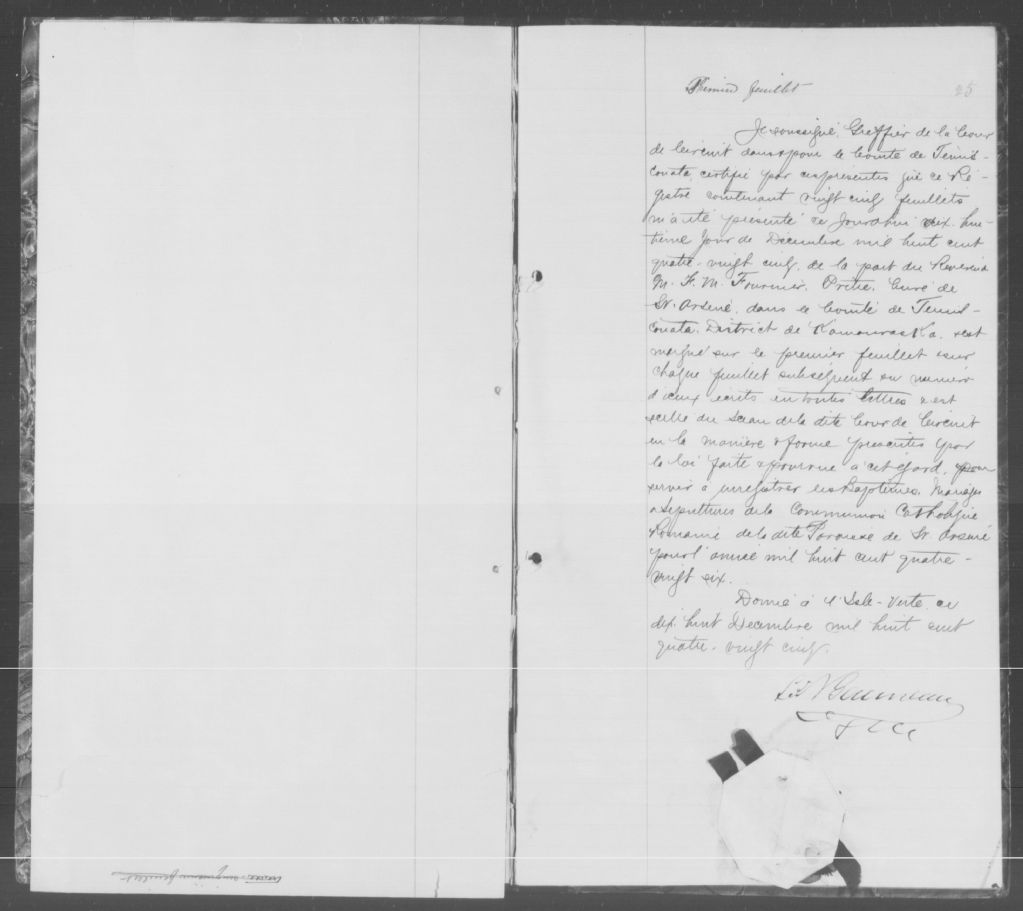 Premier feuillet
25
Je soussigné, Greffier de la Cour
de Circuit dans & pour le Comté de Témis-
couata, certifie par ces présentes que ce Ré-
gistre contenant vingt cinq feuillets
m'a été présenté ce Jourd'hui dix-hui-
tième jour de Décembre mil huit cent
quatre-vingt cinq, de la part du Révérend
M. F. M. Fournier, Prêtre, Curé de
St. Arsène, dans le Comté de Témis-
couata, District de Kamouraska, & est
marqué sur le premier feuillet & sur
chaque feuillet subséquent du numéro
d'iceux écrits en toutes lettres & est
scellé du Sceau de la dite Cour de Circuit
en la manière & forme prescrites par
la loi faite & pourvue à cet égard, pour
servir à enregistrer les Baptêmes, Mariages
& Sépultures de la Communion Catholique
Romaine de la dite Paroisse de St. Arsène
pour l'année mil huit cent quatre-
vingt six.
Donné à l'Isle-Verte, ce
dix huit Décembre mil huit cent
quatre-vingt cinq.